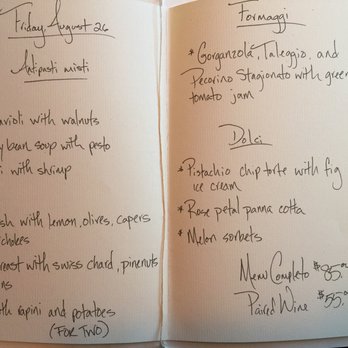 Friday, August 26
Antipasti misti
with walnuts
bean soup with pesto
with shrimp
with lemon, olives, capers
with swiss chard, pinenuts
rapini and potatoes
(FOR TWO)
Formaggi
* Gorganzola, Taleggio, and
Pecorino Stagionato with green
tomato jam
Dolci
* Pistachio chip torte with fig
ice cream
* Rose petal panna cotta
* Melon sorbets
Menu Completo $85.00
Paired Wine $55.00